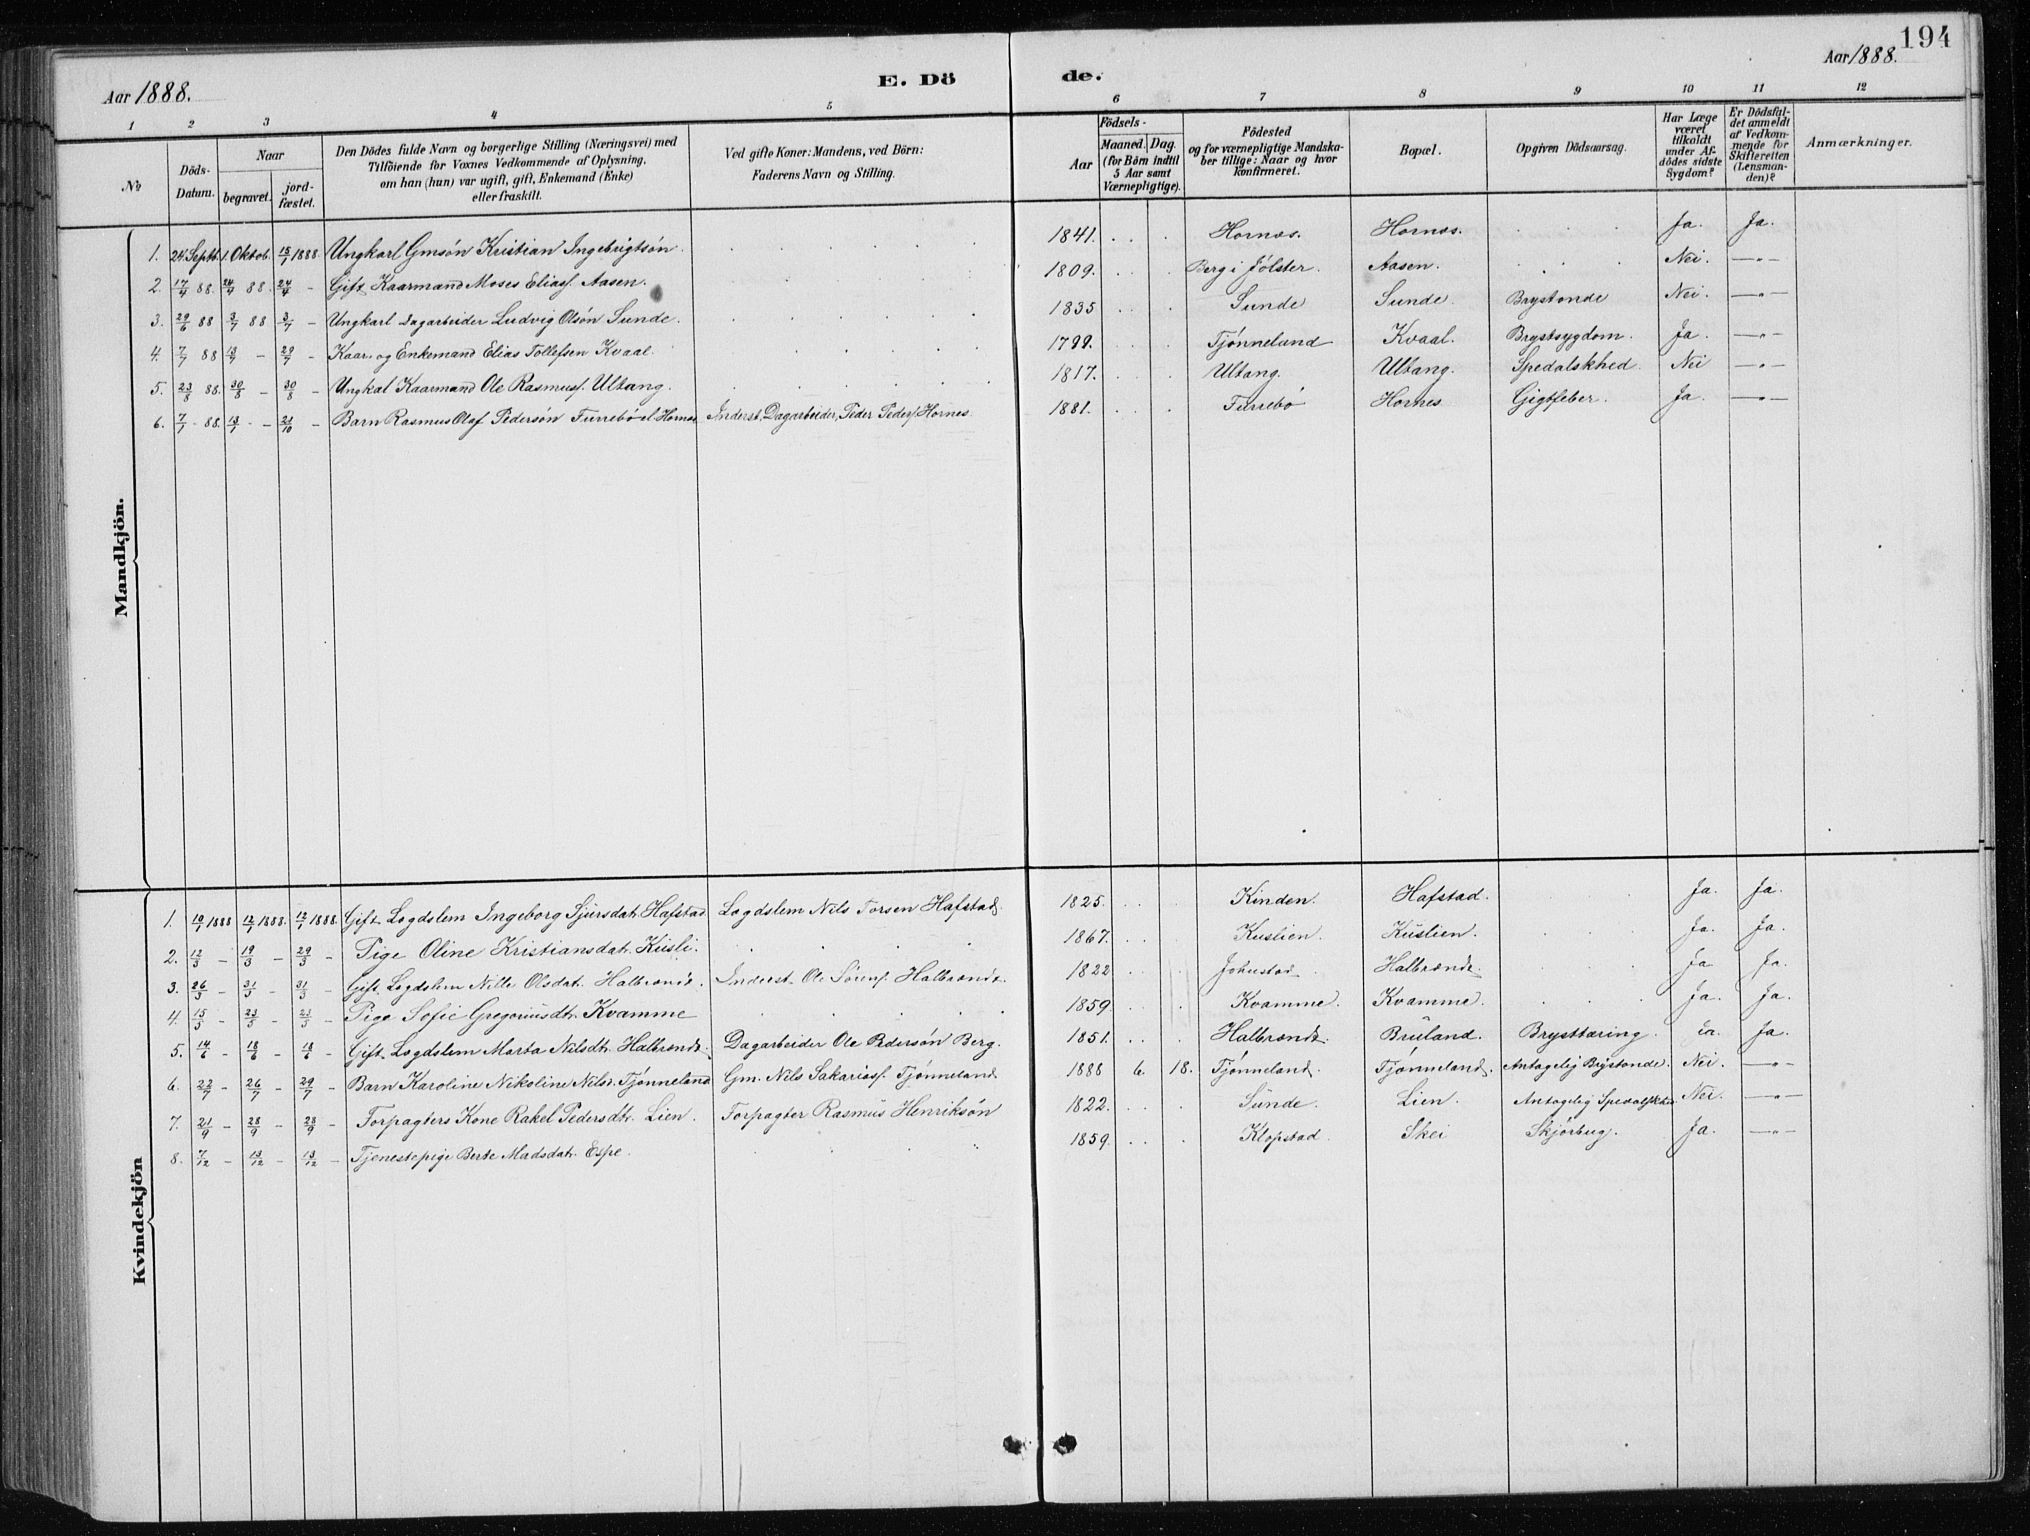 194
Aar 1888. E. Dö de. Aar 1888.
1 2 3 4 5 6 7 8 9 10 11 12
No
Döds-Datum.
Naar
begravet.
jord-fæstet.
Den Dödes fulde Navn og borgerlige Stilling (Næringsvei) med
Tilföiende for Voxnes Vedkommende af Oplysning,
om han (hun) var ugift, gift, Enkemand (Enke)
eller fraskilt.
Ved gifte Koner: Mandens, ved Börn:
Faderens Navn og Stilling.
Födsels-
Aar
Maaned. Dag.
(for Börn indtil
5 Aar samt
Værnepligtige).
Födested
og for værnepligtige Mandska-
ber tillige: Naar og hvor
konfirmeret.
Bopæl.
Opgiven Dödsaarsag.
Har Læge
været
tilkaldt
under Af-
dödes sidste
Sygdom?
Er Dödsfal-
det anmeldt
af Vedkom-
mende for
Skifteretten
(Lensman-
den)?
Anmærkninger.
Mandkjön.
1. 24 Septt. 1 Oktob. 15/1 1888. Ungkarl Gmsøn Kristian Ingebrigtsøn. 1841. Hornes. Hornes. Ja. Ja.
2. 17/4 88. 24/4 88. 24/4 – Gift Kaarmand Moses Eliasf. Aasen. 1809. Berg i Jølster. Aasen. Nei. –"–
3. 29/6 88 3/7 88 3/7 – Ungkarl Dagarbeider Ludvig Olsøn Sunde. 1835 Sunde Sunde. Brystonde Nei. –"–
4. 7/7 88 13/7 – 29/7 – Kaar. og Enkemand Elias Tollefsen Kvaal. 1799. Tjønneland Kvaal. Brystsygdom. Ja. –"–
5. 23/8 88. 30/8 – 30/8 – Ungkal Kaarmand Ole Rasmusf. Ultang. 1817. Ultang. Ultang. Spedalskhed. Nei –"–
6. 7/1 88. 13/1 – 21/10 – Barn Rasmus Olaf Pedersøn Furrebø el Hornes Inderst, Dagarbeider, Peder Pedersf Hornes. 1881. Furrebø Hornes Gigtfeber. Ja. –"–
Kvindekjön
1. 10/1 1888 12/1 1888. 12/1 1888. Gift Logdslem Ingeborg Sjursdat. Hafstad Logdslem Nils Torsen Hafstad. 1825. Kinden. Hafstad. Ja. Ja.
2. 12/3 – 19/3 – 29/3 – Pige Oline Kristiansdat. Kusli. 1867. Kuslien. Kuslien. Ja. Ja.
3. 26/3 – 31/3 – 31/3 – Gift Logdslem Nille Olsdat. Halbrendt. Inderst Ole Sørenf. Halbrendt. 1822 Halbrendt. Ja Ja.
4. 15/5 – 23/5 – 23/5 – Pige Sofie Gregoriusdtr. Kvamme 1859. Kvamme. Kvamme. Ja. Ja.
5. 14/6 – 18/6 – 18/6 – Gift Logdslem Marta Nilsdtr. Halbrendt. Dagarbeider Ole Pedersøn Berg. 1851. Halbrendt. Bruland. Brysttæring. Ja.
6. 22/7 – 26/7 – 29/7 – Barn Karoline Nikoline Nilsd. Tjønneland Gm. Nils Sakariasf. Tjønneland 1888 6. 18. Tjønneland. Tjønneland. Antagelig Brystonde. Nei. –"–
7. 21/9 – 28/9 – 28/9 – Forpagters Kone Rakel Pedersdtr. Lien. Forpagter Rasmus Henriksøn 1822. Sunde. Lien. Antagelig Spedalskhed Nei. –"–
8. 7/12 – 13/12 – 13/12 – Tjenestepige Berte Madsdat. Espe. 1859. Klopstad. Skei Skjørbug. Ja. –"–